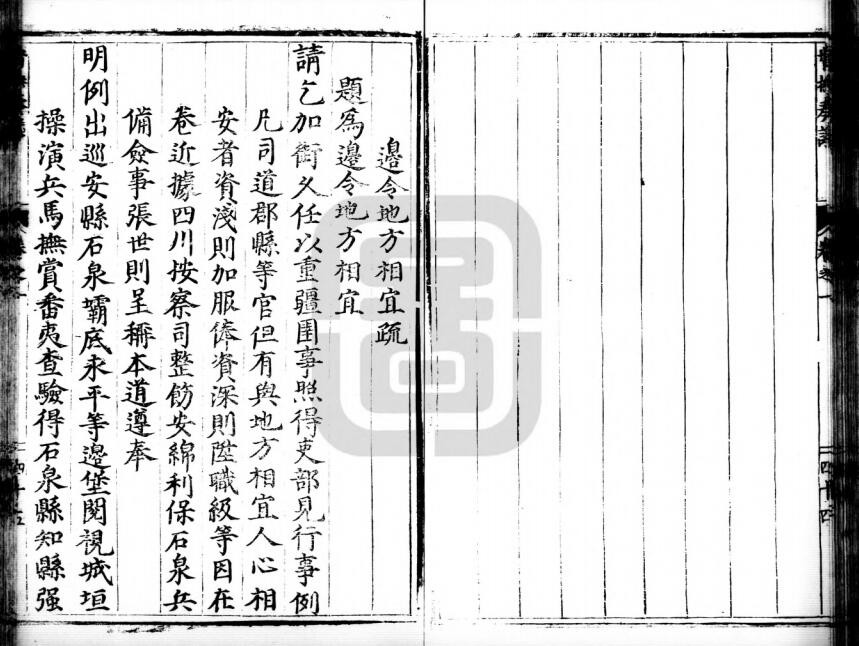 邊令地方相宜疏
題為邊令地方相宜
請乞加銜久任以重疆圉事照得吏部見行事例
凡司道郡縣等官但有與地方相宜人心相
安者資淺則加服俸資深則陞職級等因在
卷近據四川按察司整飭安綿利保石泉兵
備僉事張世則呈稱本道遵奉
明例出巡安縣石泉壩底永平等邊堡閱視城垣
操演兵馬撫賞番夷查驗得石泉縣知縣强